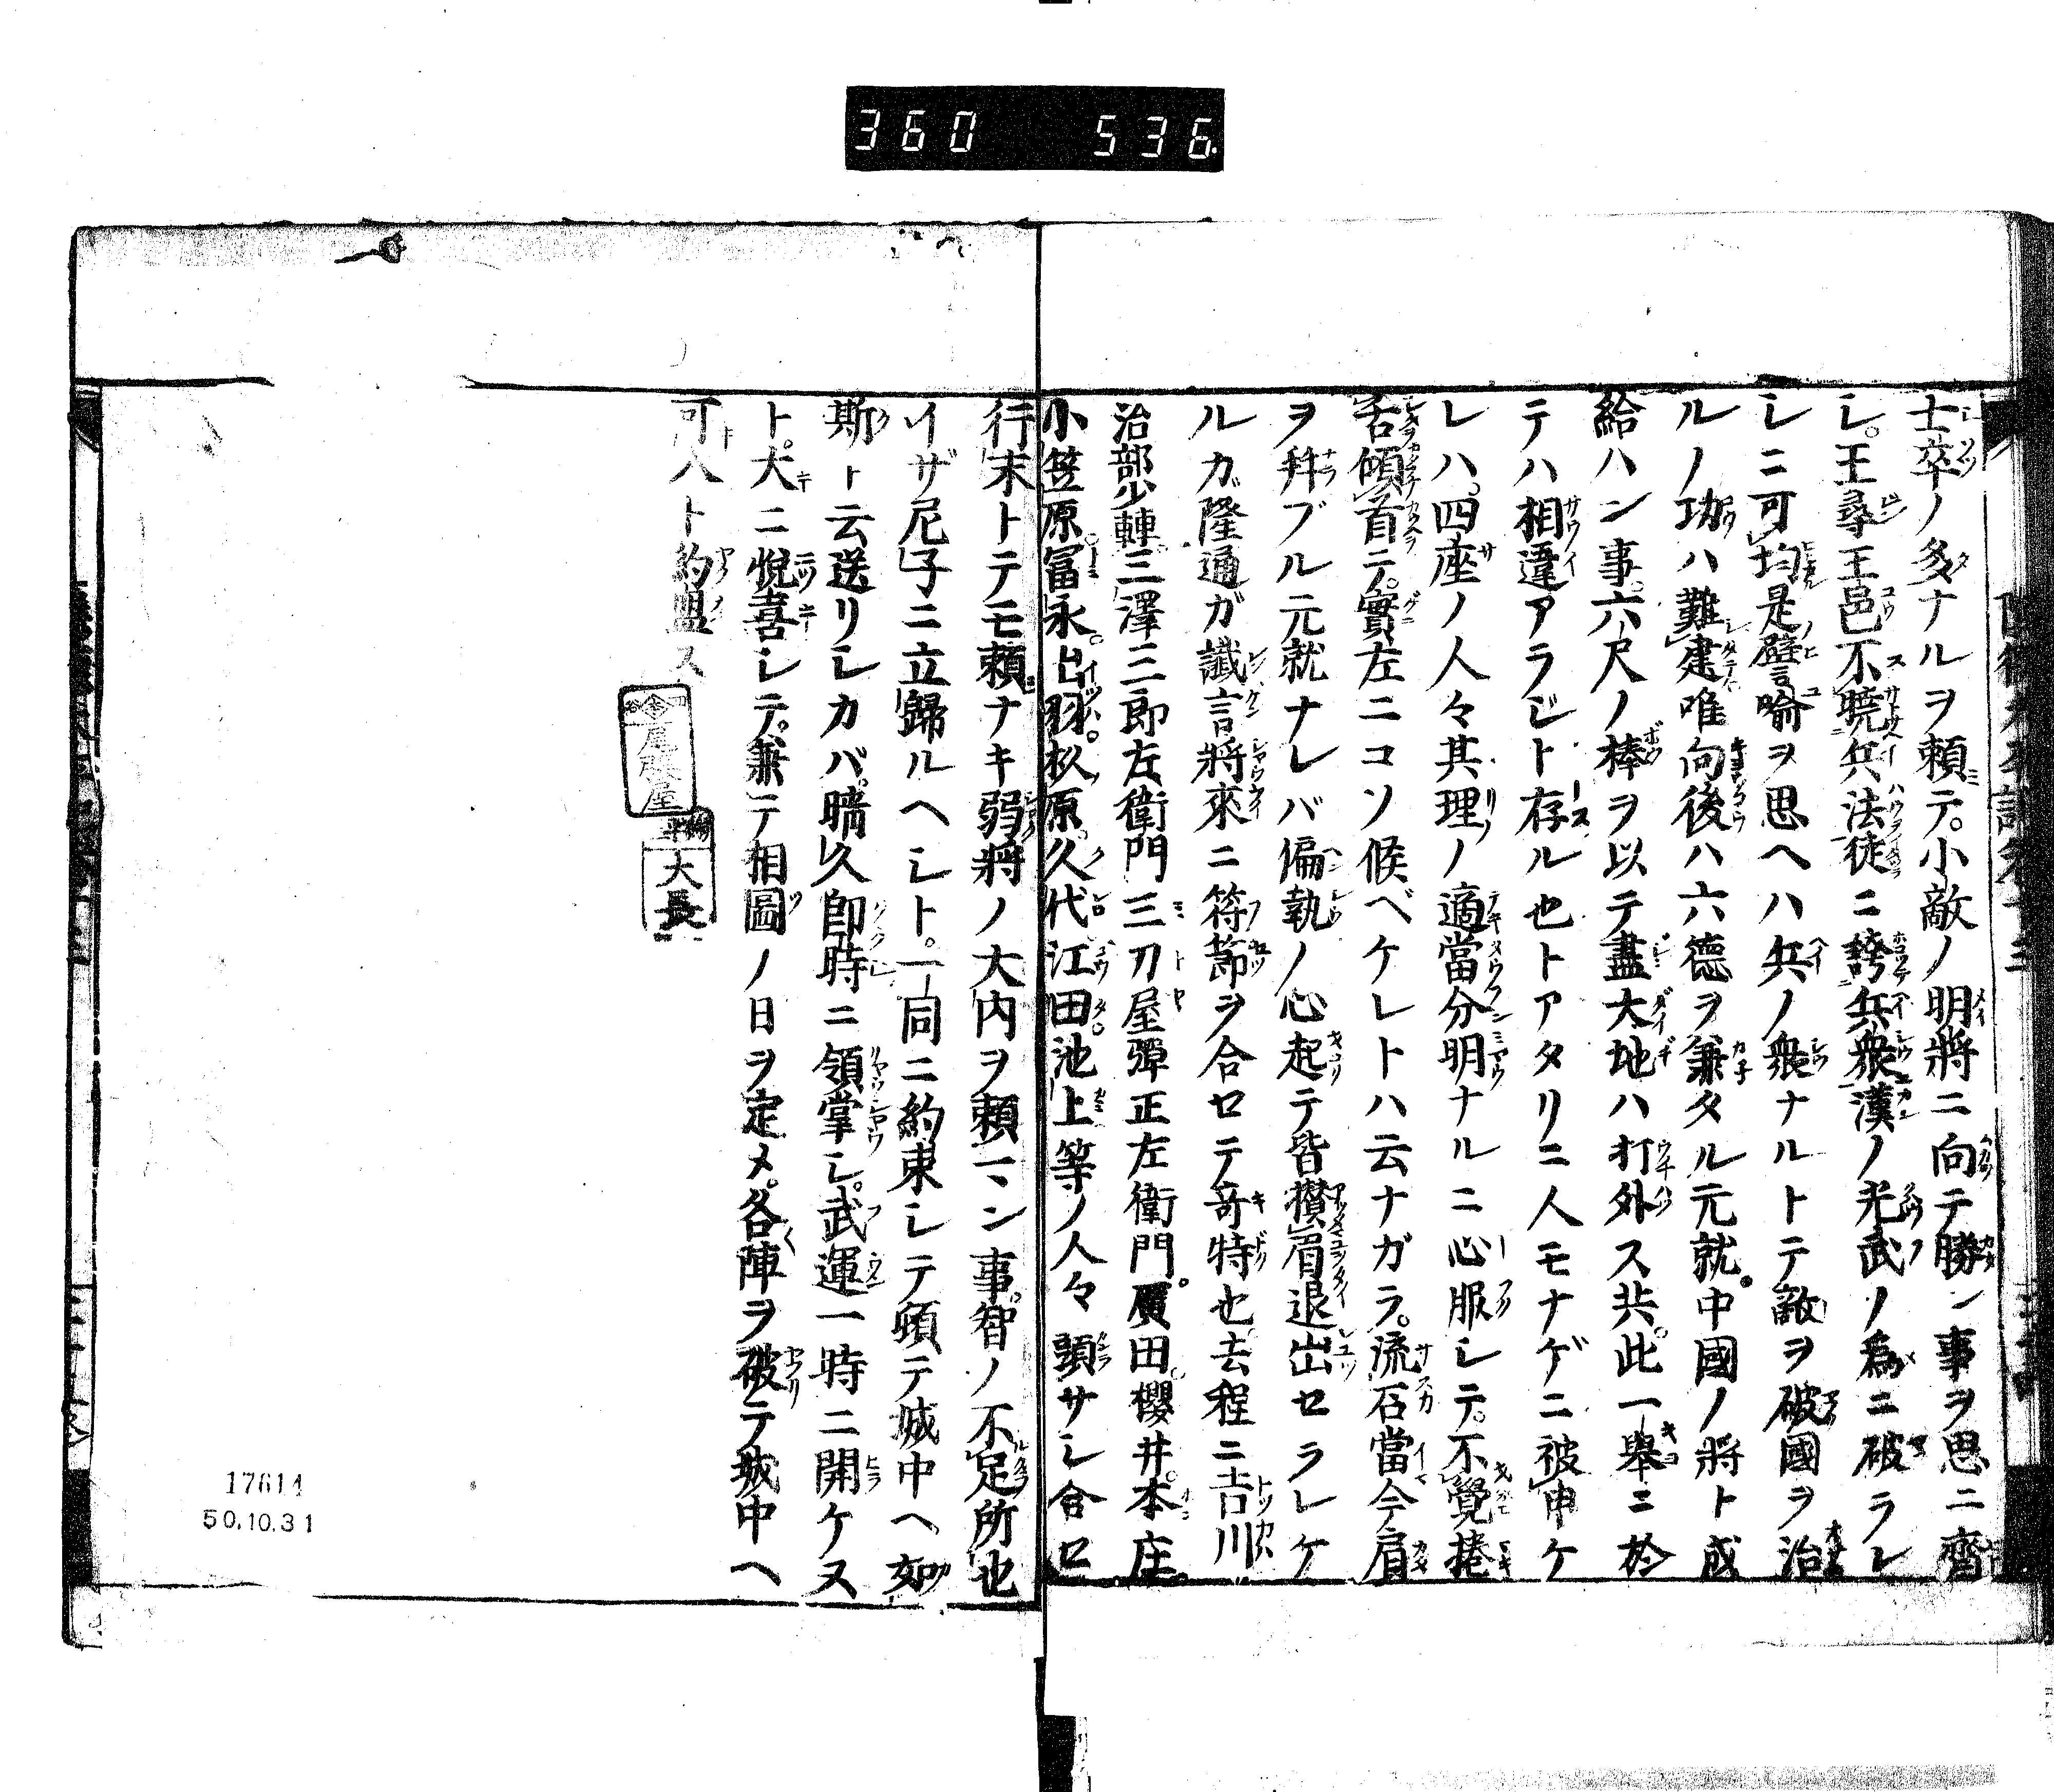 360 536
士卒ノ多ナルヲ頼テ。小敵ノ明將ニ向テ勝ン事ヲ思ニ齊
シ。王尋王邑不曉兵法徒ニ誇兵衆漢ノ光武ノ為ニ破ラレ
シニ可均是譬喻ヲ思ヘハ兵ノ衆ナルトテ敵ヲ破國ヲ治
ルノ功ハ難建唯向後ハ六德ヲ兼タル元就。中國ノ將ト成
給ハン事。六尺ノ棒ヲ以テ盡大地ハ打外ス共。此一舉ニ於
テハ相違アラジト存ル也トアタリニ人モナゲニ被申ケ
レハ。四座ノ人々其理ノ適當分明ナルニ心服シテ。不覺捲
舌傾首ニテ。實左ニコソ候ベケレトハ云ナガラ。流石當今肩
ヲ並ブル元就ナレバ偏執ノ心起テ皆攅眉退出セラレケ
ルガ隆通ガ讖言將來ニ符節ヲ合セテ奇特也去程ニ吉川
治部少輔三澤三郎左衛門三刀屋彈正左衛門。廣田。櫻井。本庄。
小笠原。冨永。出羽。杉原。久代。江田。池上等ノ人々頭サシ合セ
行末トテモ頼ナキ弱將ノ大内ヲ頼マン事。智ノ不足所也
イザ尼子ニ立歸ルヘシト。一同ニ約束シテ頓テ城中ヘ如
斯ト云送リシカバ。晴久即時ニ領掌シ。武運一時ニ開ケヌ
ト。大ニ悅喜シテ。兼テ相圖ノ日ヲ定メ。各陣ヲ破テ城中ヘ
可入ト約盟ス
尾張屋
大長
17614
50.10.31